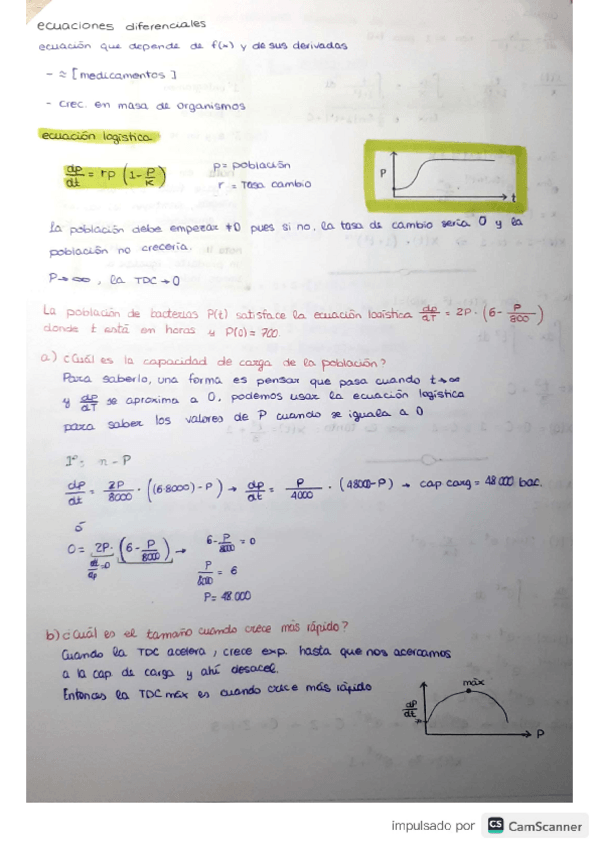 ecuaciones diferenciales
ecuación que depende de f(x) y de sus derivadas
- ≈ [medicamentos]
- crec. en masa de organismos
ecuación logística
dp/dt = rp (1 - P/K)
P = población
r = Tasa cambio
P
t
La población debe empezar ≠0 pues si no, la tasa de cambio sería 0 y la
población no crecería.
P→∞, la TDC→0
La población de bacterias P(t) satisface la ecuación logística dp/dT = 2P·(6 - P/8000)
donde t está en horas y P(0) = 700.
a) ¿Cuál es la capacidad de carga de la población?
Para saberlo, una forma es pensar que pasa cuando t→∞
y dp/dT se aproxima a 0, podemos usar la ecuación logística
para saber los valores de P cuando se iguala a 0
n - P
dp/dt = 2P/8000 · ((6·8000) - P) → dp/dt = P/4000 · (48000-P) → cap carg = 48 000 bac.
ó
0 = 2P · (6 - P/8000) → 6 - P/8000 = 0
P/8000 = 6
P = 48 000
b) ¿Cuál es el tamaño cuando crece más rápido?
Cuando la TDC acelera, crece exp. hasta que nos acercamos
a la cap. de carga y ahí desacel.
Entonces la TDC máx es cuando crece más rápido
máx
dp/dt
P
impulsado por CS CamScanner